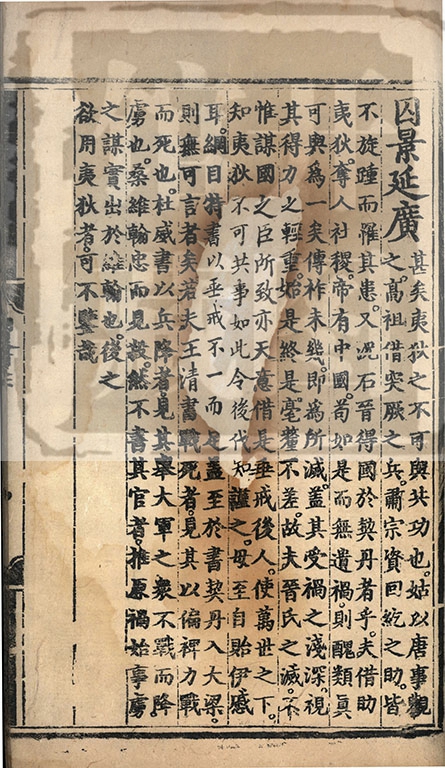 囚景延廣
甚矣夷狄之不可與共功也。姑以唐事觀
之。高祖借突厥之兵。肅宗資回紇之助。皆
不旋踵而罹其患。又況石晉得國於契丹者乎。夫借助
夷狄。奪人社稷。帝有中國。苟如是而無遺禍。則醜類真
可與爲一矣。傳祚未幾。即爲所滅。蓋其受禍之淺深。視
其得力之輕重。始是終是。毫釐不差。故夫晉氏之滅。不
惟謀國之臣所致。亦天意借是垂戒後人。使萬世之下。
知夷狄不可共事如此。令後代知謹之。毋至自貽伊慼
耳。綱目特書以垂戒不一而足。蓋至於書契丹入大梁。
則無可言者矣。若夫王清書戰死者。見其以偏裨力戰
而死也。杜威書以兵降者。見其舉大軍之衆。不戰而降
虜也。桑維翰忠而見殺。然不書其官者。推原禍始。事虜
之謀。實出於維翰也。後之
欲用夷狄者。可不鑒哉